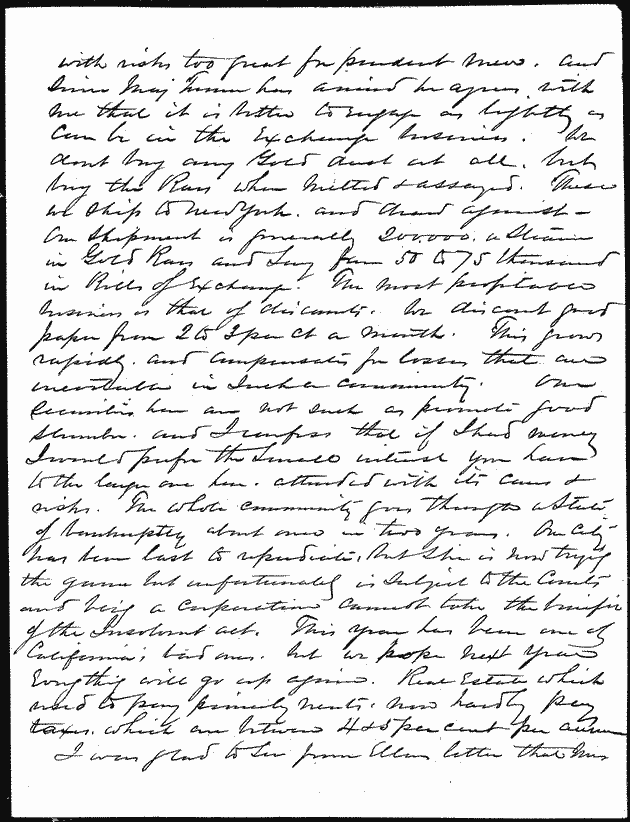 with risks too great for prudent men. and
Since Maj Turner has arrived he agrees with
me that it is better to engage as lightly as
can be in the Exchange business. We
dont buy any Gold dust at all. but
buy the Bars when melted & assayed. These
we ship to New York. and draw against –
Our Shipment is generally 200.000. a Steamer
in Gold Bars and Say from 50 to 75 thousand
in Bills of Exchange. The most profitable
business is that of discounts. We discount good
paper from 2 to 3 per ct a month. This grows
rapidly. and compensates for losses that are
inevitable in Such a community. Our
Securities here are not such as promote good
slumber. and I confess that if I had money
I would prefer the Small interest you have
to the large one here. attended with its cares &
risks. The whole community goes through a State
of bankruptcy about once in two years. Our City
has been last to repudiate, but She is now trying
the game but unfortunately is Subject to the Courts
and being a corporation cannot take the benefit
of the Insolvent act. This year has been one of
California's bad ones. but we hope next year
Everything will go up again. Real Estate which
used to pay princely rents. now hardly pay
taxes. which are between 4 & 5 per cent per annum
I was glad to See from Ellens letter that Mrs